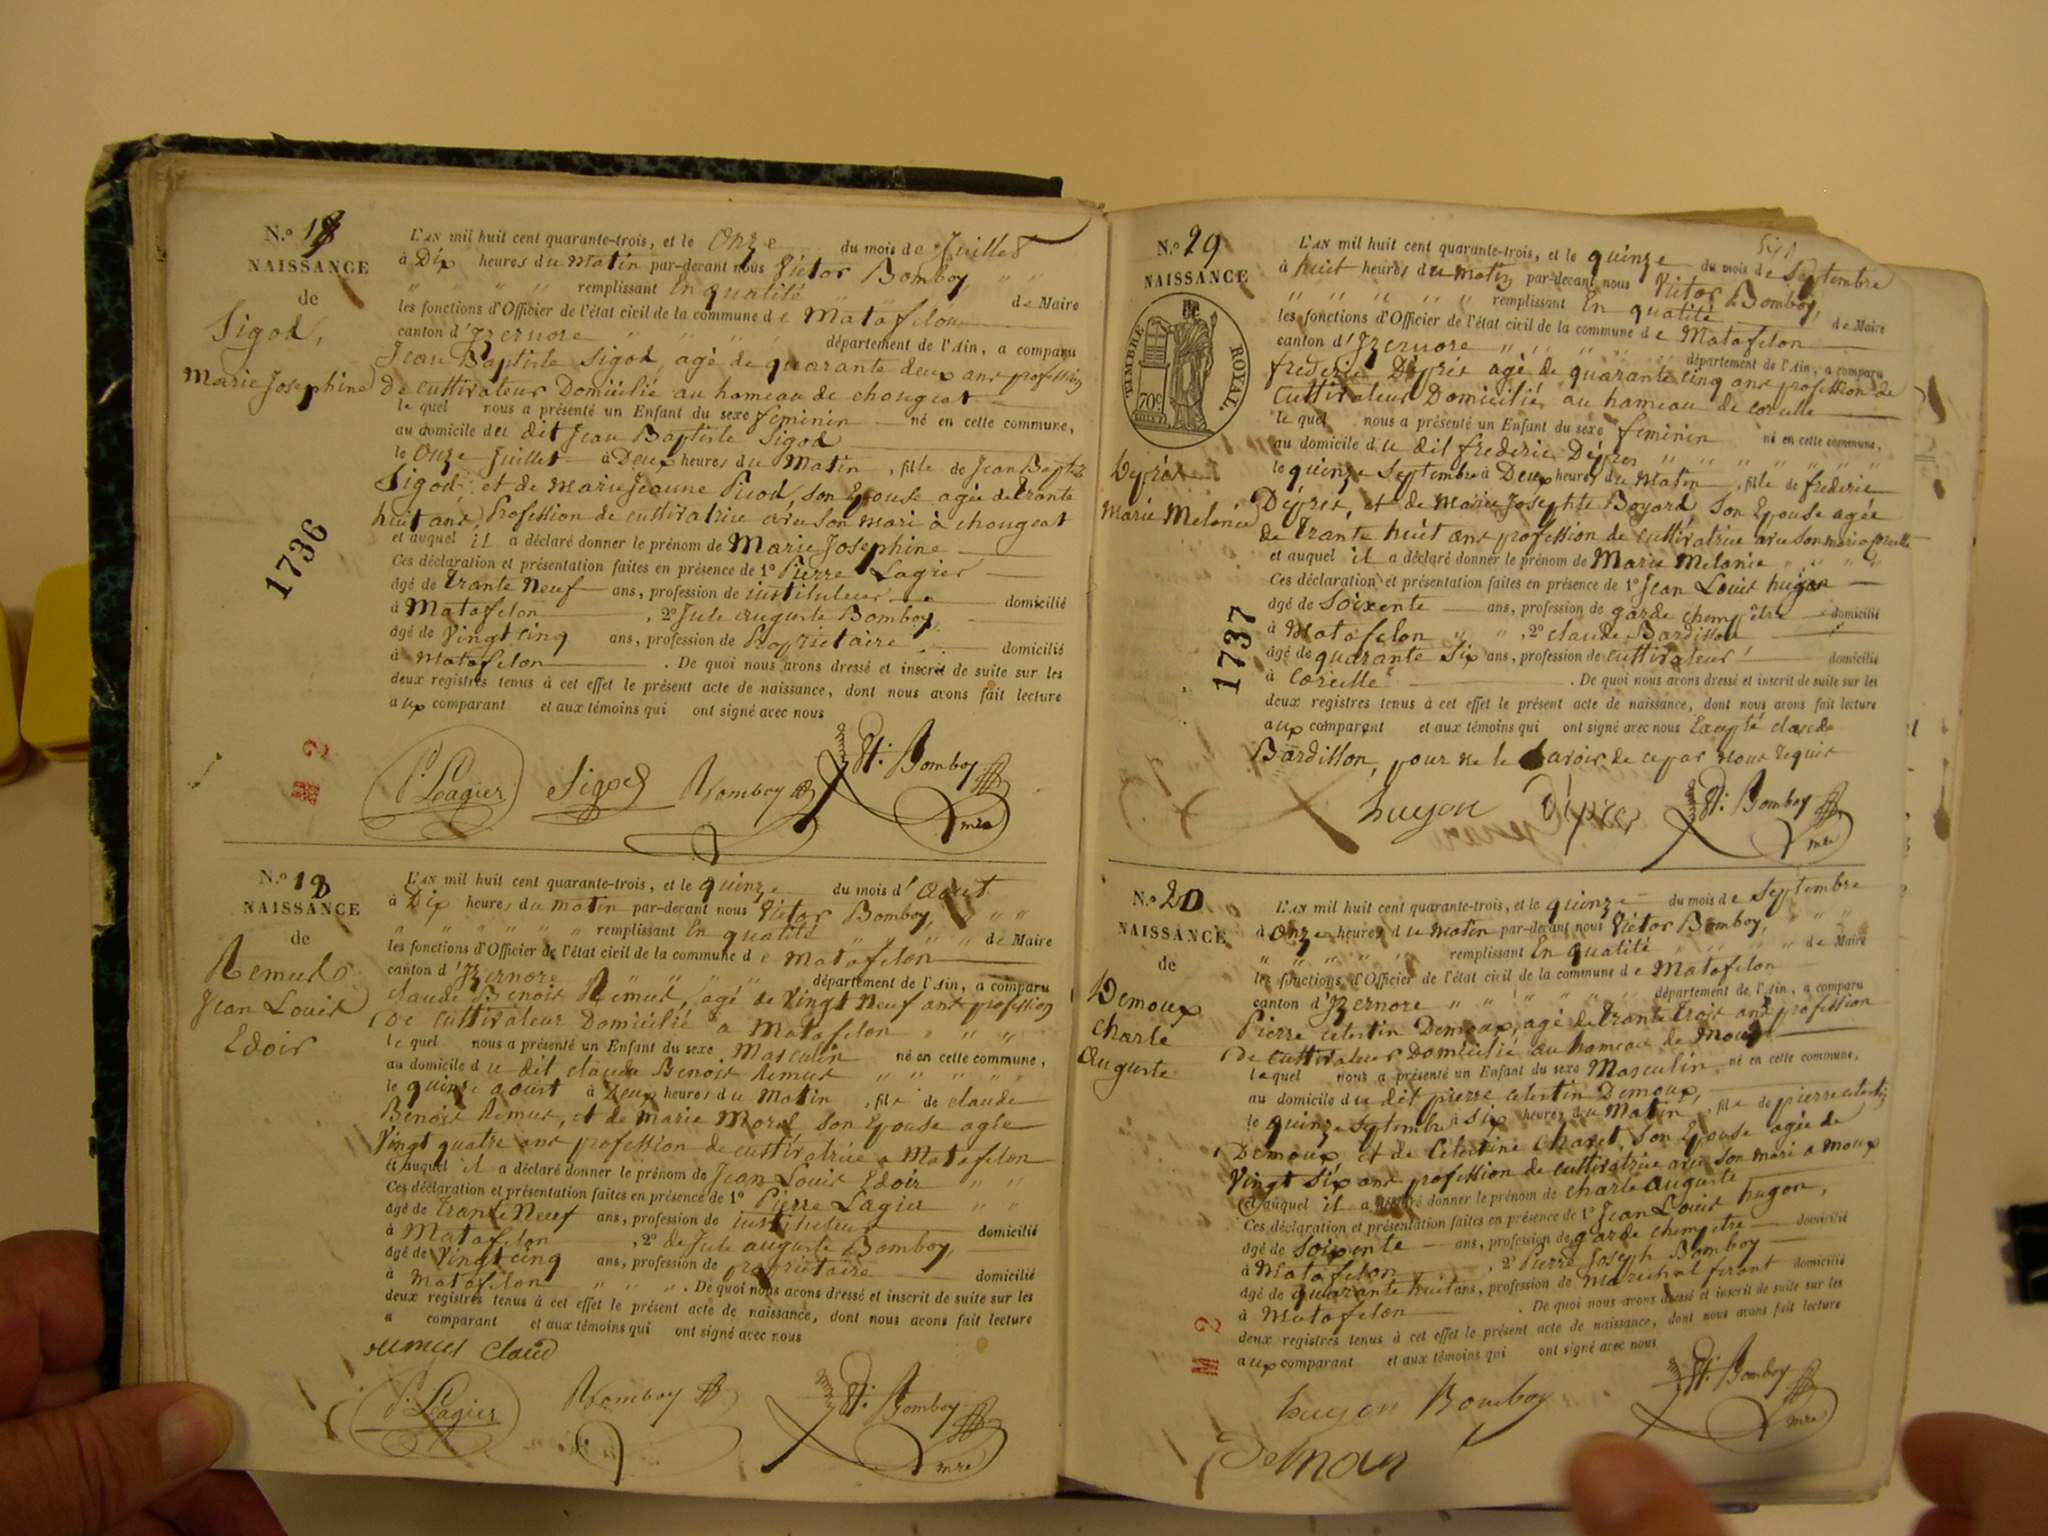 N.o 18
NAISSANCE
de
Sigod,
Marie Josephine
L'AN mil huit cent quarante-trois, et le Onze du mois de Juillet
à Dix heures du Matin par-devant nous Victor Bomboy,
remplissant En qualité de Maire
les fonctions d'Officier de l'état civil de la commune de Matafelon
canton d'Izernore département de l'Ain, a comparu
Jean Baptiste Sigod, agé de quarante deux ans profession
de cultivateur Domicilié au hameau de chougeat
le quel nous a présenté un Enfant du sexe feminin né en cette commune,
au domicile du dit Jean Baptiste Sigod
le Onze Juillet à Deux heures du Matin, fille de Jean Baptiste
Sigod et de marie Jeanne Picod, son Epouse agée de trante
huit ans, Profession de cultivatrice avec son mari à chougeat
et auquel il a déclaré donner le prénom de Marie Josephine
Ces déclaration et présentation faites en présence de 1º Pierre Lagier
âgé de trante Neuf ans, profession de instituteur domicilié
à Matafelon, 2º Jule auguste Bomboy,
âgé de Vingt cinq ans, profession de Propriétaire domicilié
à Matafelon. De quoi nous avons dressé et inscrit de suite sur les
deux registres tenus à cet effet le présent acte de naissance, dont nous avons fait lecture
aux comparant et aux témoins qui ont signé avec nous
P. Lagier Sigod Bomboy Vt. Bomboy
mre
1736
M 2
N.o 18
NAISSANCE
de
Remud
Jean Louis
Edoir
L'AN mil huit cent quarante-trois, et le quinze du mois d'Aout
à Dix heures du matin par-devant nous Victor Bomboy,
remplissant En qualité de Maire
les fonctions d'Officier de l'état civil de la commune de Matafelon
canton d'Izernore département de l'Ain, a comparu
claude Benoit Remud, agé de Vingt Neuf ans profession
De cultivateur Domicilié a Matafelon
le quel nous a présenté un Enfant du sexe Masculin né en cette commune,
au domicile du dit claude Benoit Remud
le quinze aoust à Deux heures du Matin, fils de claude
Benoit Remud, et de marie Morel son Epouse agée
Vingt quatre ans profession de cultivatrice a Matafelon
et auquel il a déclaré donner le prénom de Jean Louis Edoir
Ces déclaration et présentation faites en présence de 1º Pierre Lagier
âgé de trante Neuf ans, profession de instituteur domicilié
à Matafelon, 2º de Jule auguste Bomboy,
âgé de Vingt cinq ans, profession de propriétaire domicilié
à Matafelon. De quoi nous avons dressé et inscrit de suite sur les
deux registres tenus à cet effet le présent acte de naissance, dont nous avons fait lecture
a comparant et aux témoins qui ont signé avec nous
remud Claud
P. Lagier Bomboy Vt. Bomboy
mre
N.o 29
NAISSANCE
TIMBRE ROYAL.
70c
Déprés
Marie Melanie
L'AN mil huit cent quarante-trois, et le quinze du mois de Septembre
à huit heures du matin par-devant nous Victor Bomboy,
remplissant En qualité de Maire
les fonctions d'Officier de l'état civil de la commune de Matafelon
canton d'Izernore département de l'Ain, a comparu
frederic Déprés agé de quarante cinq ans profession de
Cultivateur Domicilié au hameau de corcelle
le quel nous a présenté un Enfant du sexe feminin né en cette commune,
au domicile du dit frederic Déprés
le quinze Septembre à Deux heures du Matin, fille de frederic
Déprés, et de Marie Josephte Boyard son Epouse agée
de trante huit ans profession de cultivatrice avec son mari a corcelle
et auquel il a déclaré donner le prénom de Marie Melanie
Ces déclaration et présentation faites en présence de 1º Jean Louis hugon
âgé de Soixente ans, profession de garde champêtre domicilié
à Matafelon, 2º claude Bardillon
âgé de quarante Six ans, profession de cultivateur domicilié
à Corcelle. De quoi nous avons dressé et inscrit de suite sur les
deux registres tenus à cet effet le présent acte de naissance, dont nous avons fait lecture
aux comparant et aux témoins qui ont signé avec nous Excepté claude
Bardillon, pour ne le savoir de ce par nous requis
hugon Déprés Vt. Bomboy
mre
1737
N.o 20
NAISSANCE
de
Demoux
Charle
Auguste
L'AN mil huit cent quarante-trois, et le quinze du mois de Septembre
à Onze heures du matin par-devant nous Victor Bomboy,
remplissant En qualité de Maire
les fonctions d'Officier de l'état civil de la commune de Matafelon
canton d'Izernore département de l'Ain, a comparu
Pierre celestin Demoux, agé de trante trois ans profession
De cultivateur Domicilié au hameau de Moux
le quel nous a présenté un Enfant du sexe Masculin né en cette commune,
au domicile du dit pierre celestin Demoux,
le quinze Septembre à Six heures du Matin, fils de pierre celestin
Demoux et de Celestine Chavet, son Epouse agée de
Vingt Six ans profession de cultivatrice avec son mari a moux
et auquel il a déclaré donner le prénom de charle auguste
Ces déclaration et présentation faites en présence de 1º Jean Louis hugon,
âgé de Soixente ans, profession de garde champetre domicilié
à Matafelon, 2º Pierre Joseph Bomboy
âgé de quarante huit ans, profession de Marechal ferant domicilié
à Matafelon. De quoi nous avons dressé et inscrit de suite sur les
deux registres tenus à cet effet le présent acte de naissance, dont nous avons fait lecture
aux comparant et aux témoins qui ont signé avec nous
hugon Bomboy Vt. Bomboy
mre
M 2